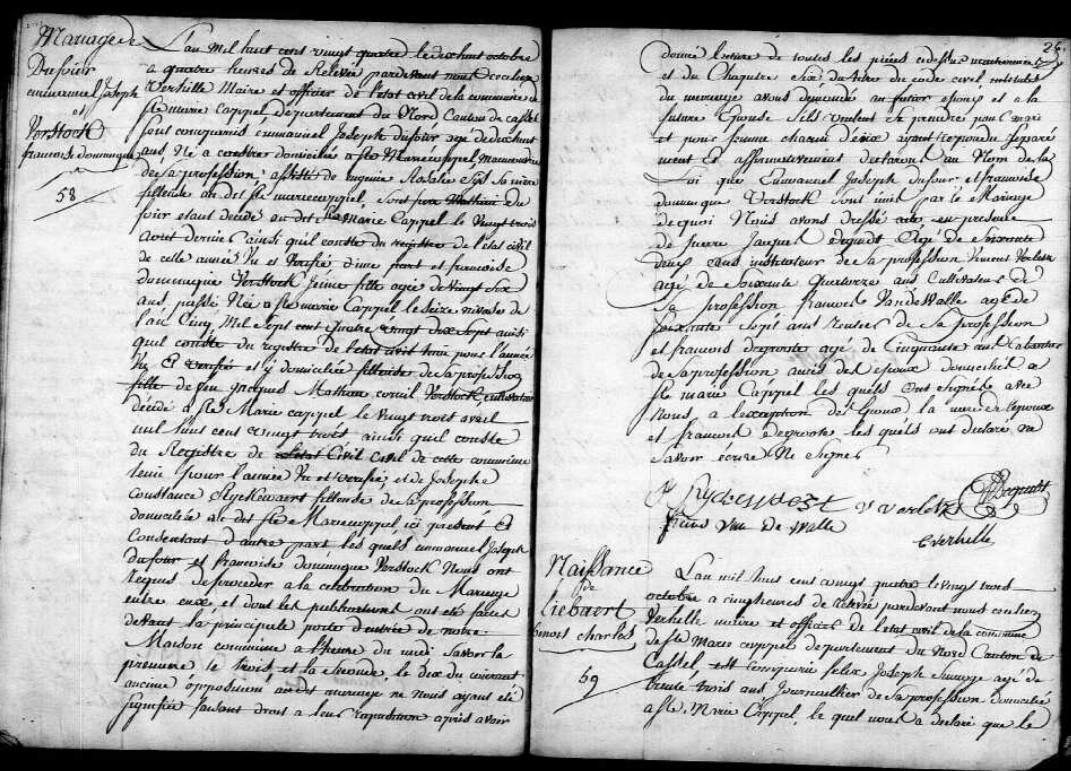 Mariage de
Dufour
emmanuel Joseph
et
Verstock
francoise dominique
58
L'an mil huit cent vingt quatre le dix huit octobre
a quatre heures de Relevée pardevant nous
Verhille Maire et officier de l'etat civil de la commune de
Ste marie Cappel, departement du Nord Canton de Cassel
sont comparus emmanuel Joseph dufour agé de dix huit
ans, Né a domicilié a Ste Mariecappel,
de sa profession assisté de eugenie Rosalie sa mère
fileuse au dit Ste mariecappel, Du
four etant décédé au dit Ste marie Cappel le vingt trois
avril dernier ainsi qu'il conste du registre de l'etat civil
de celle année Vu et Verifié d'une part et francoise
dominique Verstock jeune fille agée de vingt six
ans passé Née a Ste marie Cappel le seize nivose de
l'an Cinq, mil sept cent quatre vingt dix sept ainsi
qu'il conste du registre de l'etat civil tenu pour l'année
Vu Et verifié et y domiciliée fileuse de sa profession
fille de feu jacques Mathieu corneil Verstock, cultivateur
décédé a Ste Marie cappel le vingt trois avril
mil huit cent vingt trois ainsi qu'il conste
du Registre de l'etat Civil de cette commune
tenu pour l'année Vu et verifié, et de Josephe
Constance Ryckewaert fileuse de sa profession
domiciliée au dit Ste Mariecappel, ici present Et
Consentant d'autre part les quels emmanuel Joseph
Dufour et francoise dominique Verstock Nous ont
requis de proceder a la celebration du Mariage
entre eux, et dont les publications ont été faites
devant la principale porte d'entrée de notre
Maison commune a l'heure du midi savoir la
premiere le trois, et la seconde, le dix du courant
aucune opposition au dit mariage ne Nous ayant été
signifiée faisant droit a leur requisition après avoir
26.
donné lecture de toutes les pièces cidessus mentionnées
et du Chapitre six du titre du code civil intitulé
du mariage avons demandé au futur epoux et a la
future Epouse s'ils veulent se prendre pour mari
et pour femme chacun d'eux ayant repondu separé
ment et affirmativement declarons au Nom de la
Loi que Emmanuel Joseph dufour et francoise
dominique Verstock sont unis par le Mariage
de quoi Nous avons dressé acte en presence
de pierre Jacques dequidt agé de soixante
deux ans instituteur de sa profession Vincent
agé de soixante Quatorze ans Cultivateur de
Sa profession francois Vandewalle agé de
soixante sept ans rentier de Sa profession
et francois agé de Cinquante ans Cabaretier
de sa profession amis des epoux domicilié a
Ste marie Cappel les quels ont signés avec
Nous, a l'exception de l'epoux la mere de l'epoux
et francois les quels ont declaré ne
savoir écrire Ne signer
Verhille
Naissance
de
Liebaert
benoit charles
59
L'an mil huit cent vingt quatre le vingt trois
octobre a cinq heures de relevée pardevant nous
Verhille maire et officier de l'etat civil de la commune
de Ste Marie cappel departement du Nord Canton de
Cassel est comparu felix Joseph agé de
trente trois ans Journallier de sa profession domicilié
a Ste Marie Cappel, le quel nous a declaré que le